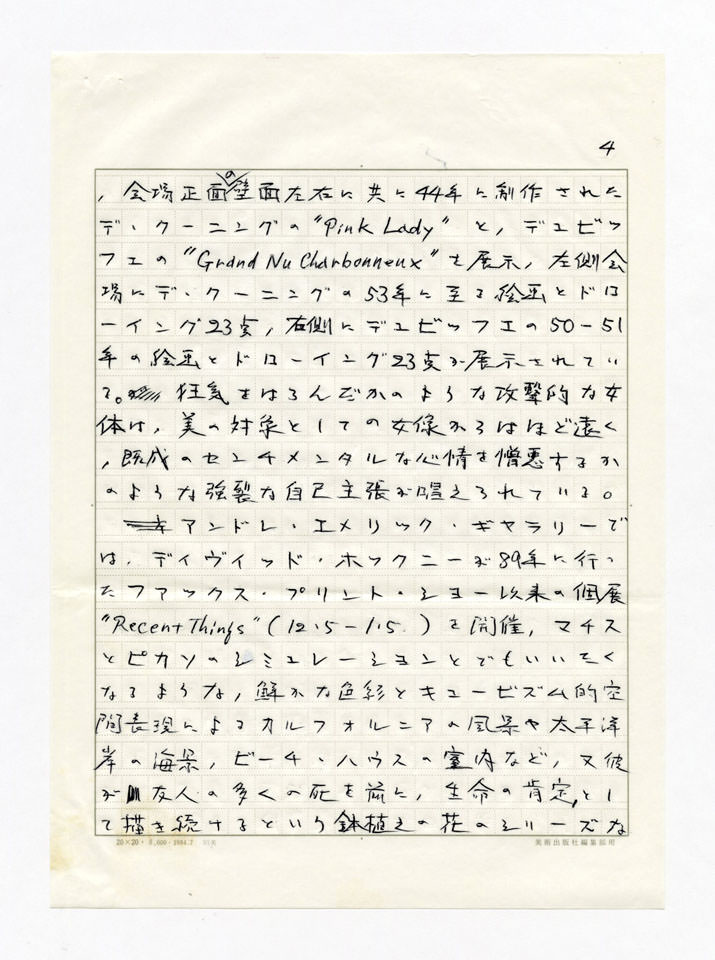 4
、会場正面の壁面左右に共に44年に制作された
デ・クーニングの"Pink Lady"と,デュビッ
フェの"Grand Nu Charbonneux"を展示,左側会
場にデ・クーニングの53年に至る絵画とドロ
ーイング23点,右側にデュビッフェの50-51
年の絵画とドローイング23点が展示されてい
る。狂気をはらんだかのような攻撃的な女
体は,美の対象としての女像からはほど遠く
,既成のセンチメンタルな心情を憎悪するか
のような強裂な自己主張が唱えられている。
アンドレ・エメリック・ギャラリーで
は,デイヴィッド・ホックニーが89年に行っ
たファックス・プリント・ショー以来の個展
"Recent Things"(12.5-1.5.)を開催,マチス
とピカソのシミュレーションとでもいいたく
なるような,鮮かな色彩とキュービズム的空
間表現によるカルフォルニアの風景や太平洋
岸の海景,ビーチ・ハウスの室内など,又彼
が友人の多くの死を前に,生命の肯定,とし
て描き続けるという鉢植えの花のシリーズな
20×20・8,000・1984.7
美術出版社編集部用